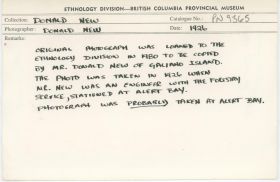 ETHNOLOGY DIVISION—BRITISH COLUMBIA PROVINCIAL MUSEUM
Collection: DONALD NEW Catalogue No.: PN 9365
Photographer: DONALD NEW Date: 1926
Remarks:
ORIGINAL PHOTOGRAPH WAS LOANED TO THE
ETHNOLOGY DIVISION IN 1980 TO BE COPIED
BY MR. DONALD NEW OF GALIANO ISLAND.
THE PHOTO WAS TAKEN IN 1926 WHEN
MR. NEW WAS AN ENGINEER WITH THE FORESTRY
SERVICE, STATIONED AT ALERT BAY.
PHOTOGRAPH WAS PROBABLY TAKEN AT ALERT BAY.